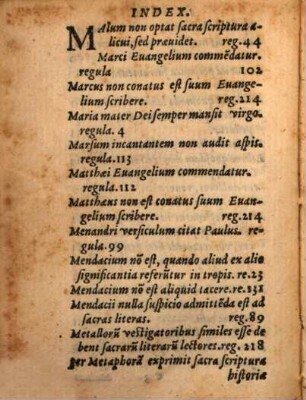 INDEX.
MAlum non optat sacra scriptura a-
licui, sed præuidet. reg. 44
Marci Euangelium commēdatur.
regula 102
Marcus non conatus est suum Euange-
lium scribere. reg. 214
Maria mater Dei semper mansit virgo.
regula. 4
Marsum incantantem non audit aspis.
regula. 113
Matthæi Euangelium commendatur.
regula. 112
Matthæus non est conatus suum Euan-
gelium scribere. reg. 214
Menandri versiculum citat Paulus. re-
gula. 99
Mendacium nō est, quando aliud ex alio
significantia referūtur in tropis. re. 23
Mendacium nō est aliquid tacere. re. 131
Mendacii nulla suspicio admittēda est ad
sacras literas. reg. 89
Metallorū vestigatoribus similes esse de
bent sacrarū literarū lectores. reg. 218
Per Metaphorā exprimit sacra scriptura
historia